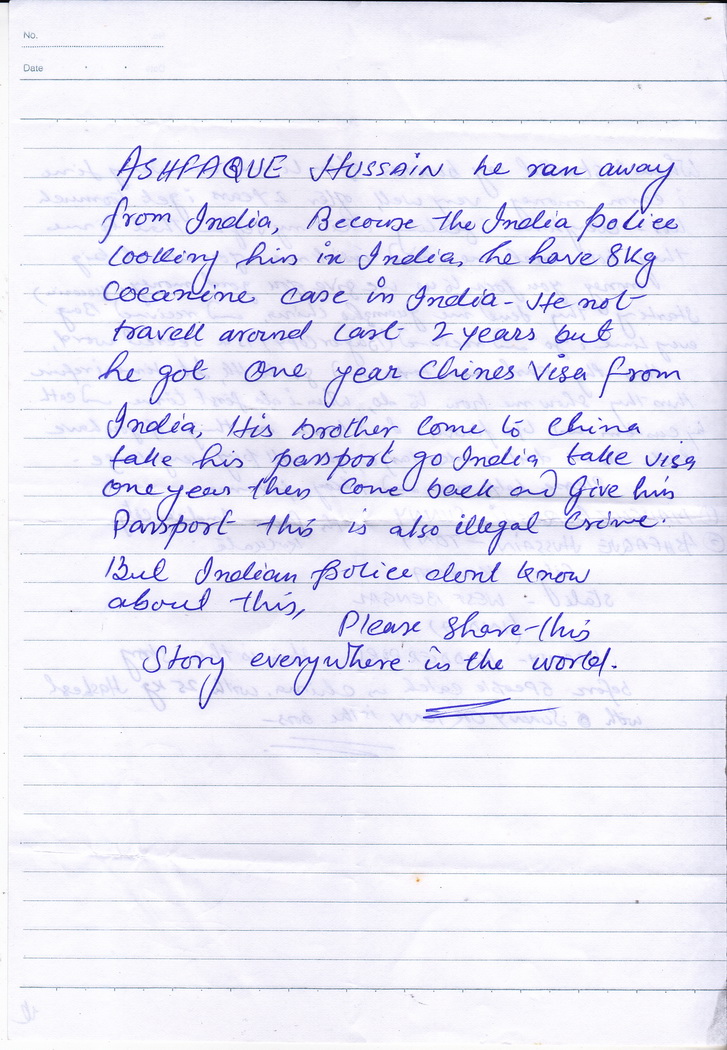 No.
Date
ASHFAQUE HUSSAIN he ran away
from India, Becouse the India police
looking him in India, he have 8Kg
Cocanine case in India - He not
travell around last 2 years but
he got one year Chines Visa from
India, His brother come to China
take his passport go India take visa
one year then come back and give him
Passport this is also illegal Crime.
But Indian police dont know
about this,
Please share this
Story everywhere in the world.